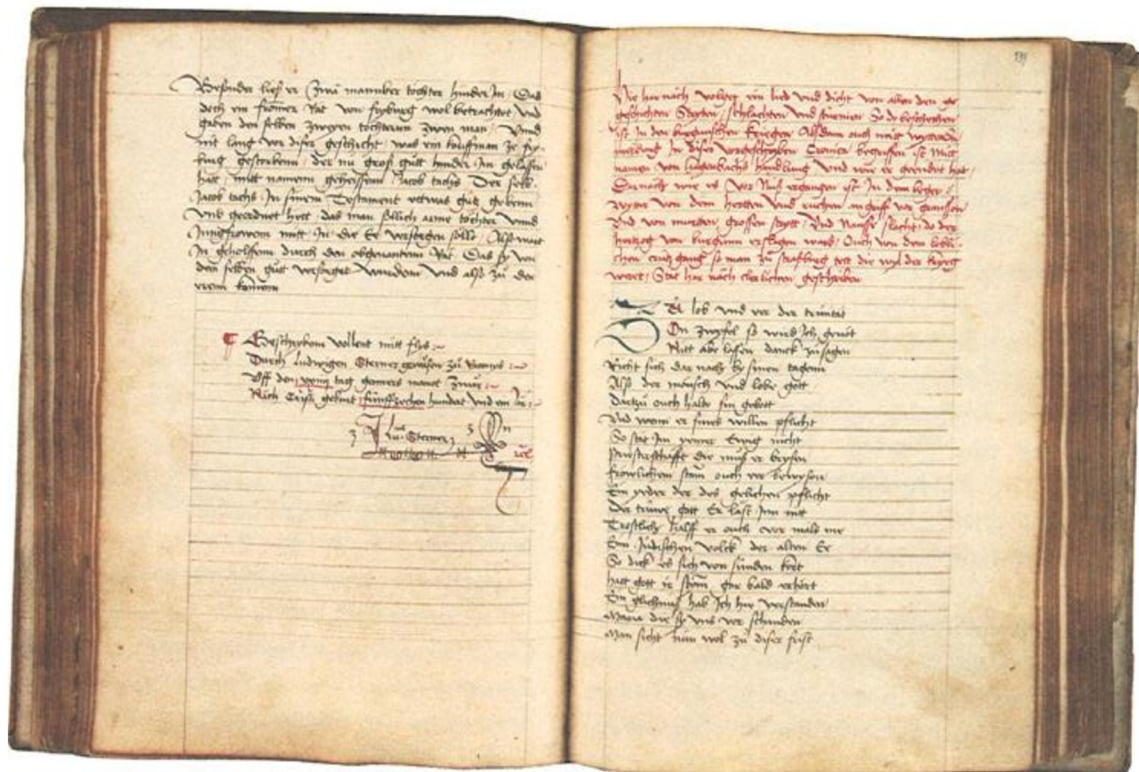 Besonder ließ er zwo manber töchter hinder Im Das
doch ein fromer Rat von fryburg wol betrachtet Vnd
gaben den selben zweyen töchteren zwen man / Vnnd
nit lang vor diser geschicht / was ein kouffman ze fry
burg gestorbenn / der nu groß gutt hinder Im gelassen
hatt mitt namenn geheissenn Jacob tachs Der selb
Jacob tachs In sinem Testament etwas gutz gebenn
vnd geordnet hett / das man söllich arme töchter vnnd
Jungfrowenn mitt In die Ee versorgen sölle / Also wart
In geholffenn durch den obgenantenn Rat Das sy von
dem selben gutt versorget wurdenn Vnd also zu den
eren komenn
Geschrybenn vollent mitt flys
Durch Ludwigen Sterner zu
Vff den tag genners manot zwar
Nach Cristi geburt fünffzechen hundert vnd ein Jar
Lud. Sterner
Hie har nach volget ein lied vnd dicht von allen den ge
geschichten Stryten / schlachten vnd stürmen So do beschechen
ist In den burgunschen kriegen Als dann ouch mitt
In diser vorgeschribnen Cronica begriffen ist Mitt
namen von hagenbachs handlung Vnd wie er geendet hatt
Darnach wie es vor Nüß ergangen ist In dem leger
von dem hertzen Vnd von granson
Vnd von murten / grossen stryt / Vnd Nanse slacht / do der
hertzog von burgunn erslagen ward / Ouch von dem löbli
chen crützgang so man zu straßburg tett die wyl der krieg
wert / Stat har nach eberlichen geschriben
Zu lob vnd eer der trinitat
On zwyfel so wird Ich genöt
Mitt ablosen danck zu sagen
Richt sich dar nach by sinen tagenn
Also der mensch Vnd lobe gott
Dartzu ouch halte sin gebott
Vnd wenn er sines willen pflicht
So stat Im Ewig nicht
Priesterschafft die muß er bryßen
frowlichem stam ouch eer bewysen
Ein yeder der des gelichen pflicht
Der trüwe gott Er lasst Inn nitt
Trostlich halff er ouch ee
Dem Jüdischen volck der alten Ee
So dick es sich von sünden kert
hatt gott ir stim gar bald erhört
Ein glichnuß hab Ich hie verstanden
Maria die sy vns vor schanden
Man sicht nun wol zu diser frist